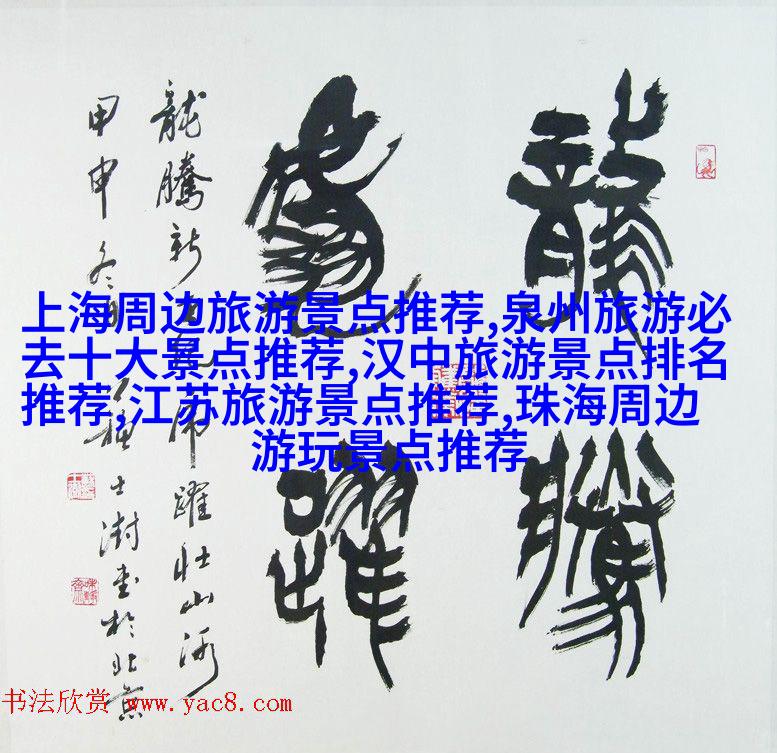 龍騰
虎躍
龍騰新 虎躍壯山河
甲申冬 士澍書於北京
上海周边旅游景点推荐,泉州旅游必
去十大景点推荐,汉中旅游景点排名
推荐,江苏旅游景点推荐,珠海周边
游玩景点推荐
书法欣赏 www.yac8.com